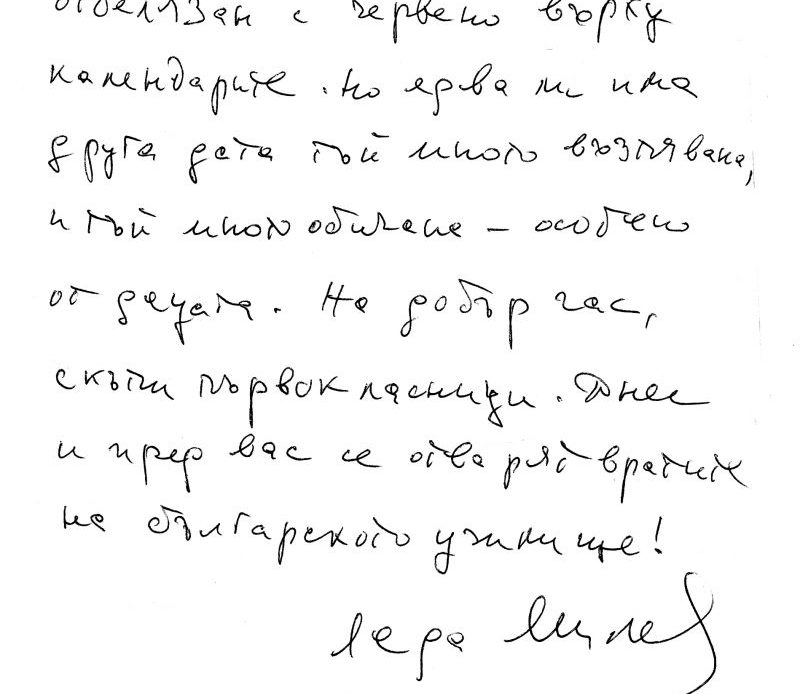 отбелязан с червено върху
календарите. Но едва ли има
друга дата тъй много възпявана,
и тъй много обичана – особено
от децата. На добър час,
скъпи първокласници. Днес
и пред вас се отварят вратите
на българското училище!
Леда Милева